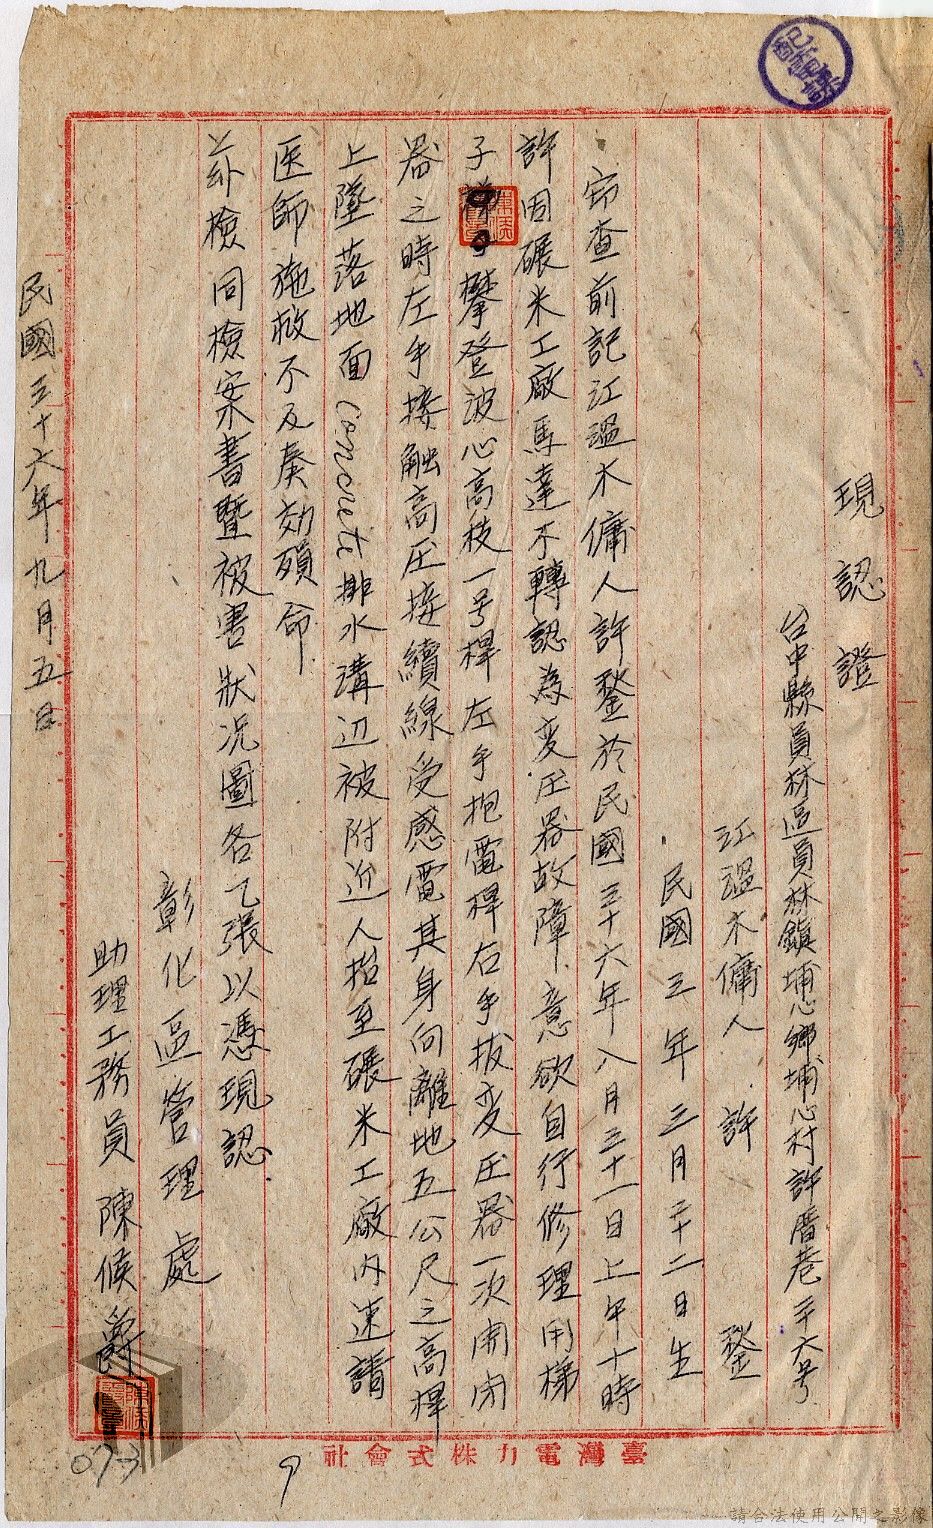 現認證
台中縣員林區員林鎮埔心鄉埔心村許厝巷三六号
江溫木傭人 許 鍪
民國三年三月二十二日生
窃查前記江溫木傭人許鍪於民國三十六年八月三十一日上午十時
許因碾米工廠馬達不轉認為变压器故障意欲自行修理用梯
子攀登波心高枝一号桿左手抱電桿右手拔变压器一次開閉
器之時左手接触高压接續線受感電其身向離地五公尺之高桿
上墜落地面Concrete排水溝辺被附近人抬至碾米工廠內速請
医師施救不及奏効殞命
茲外檢同檢案書暨被害狀况圖各乙張以憑現認
彰化區管理處
助理工務員 陳候爵
民國三十六年九月五日
073
9
臺灣電力株式會社
請合法使用公開之影像